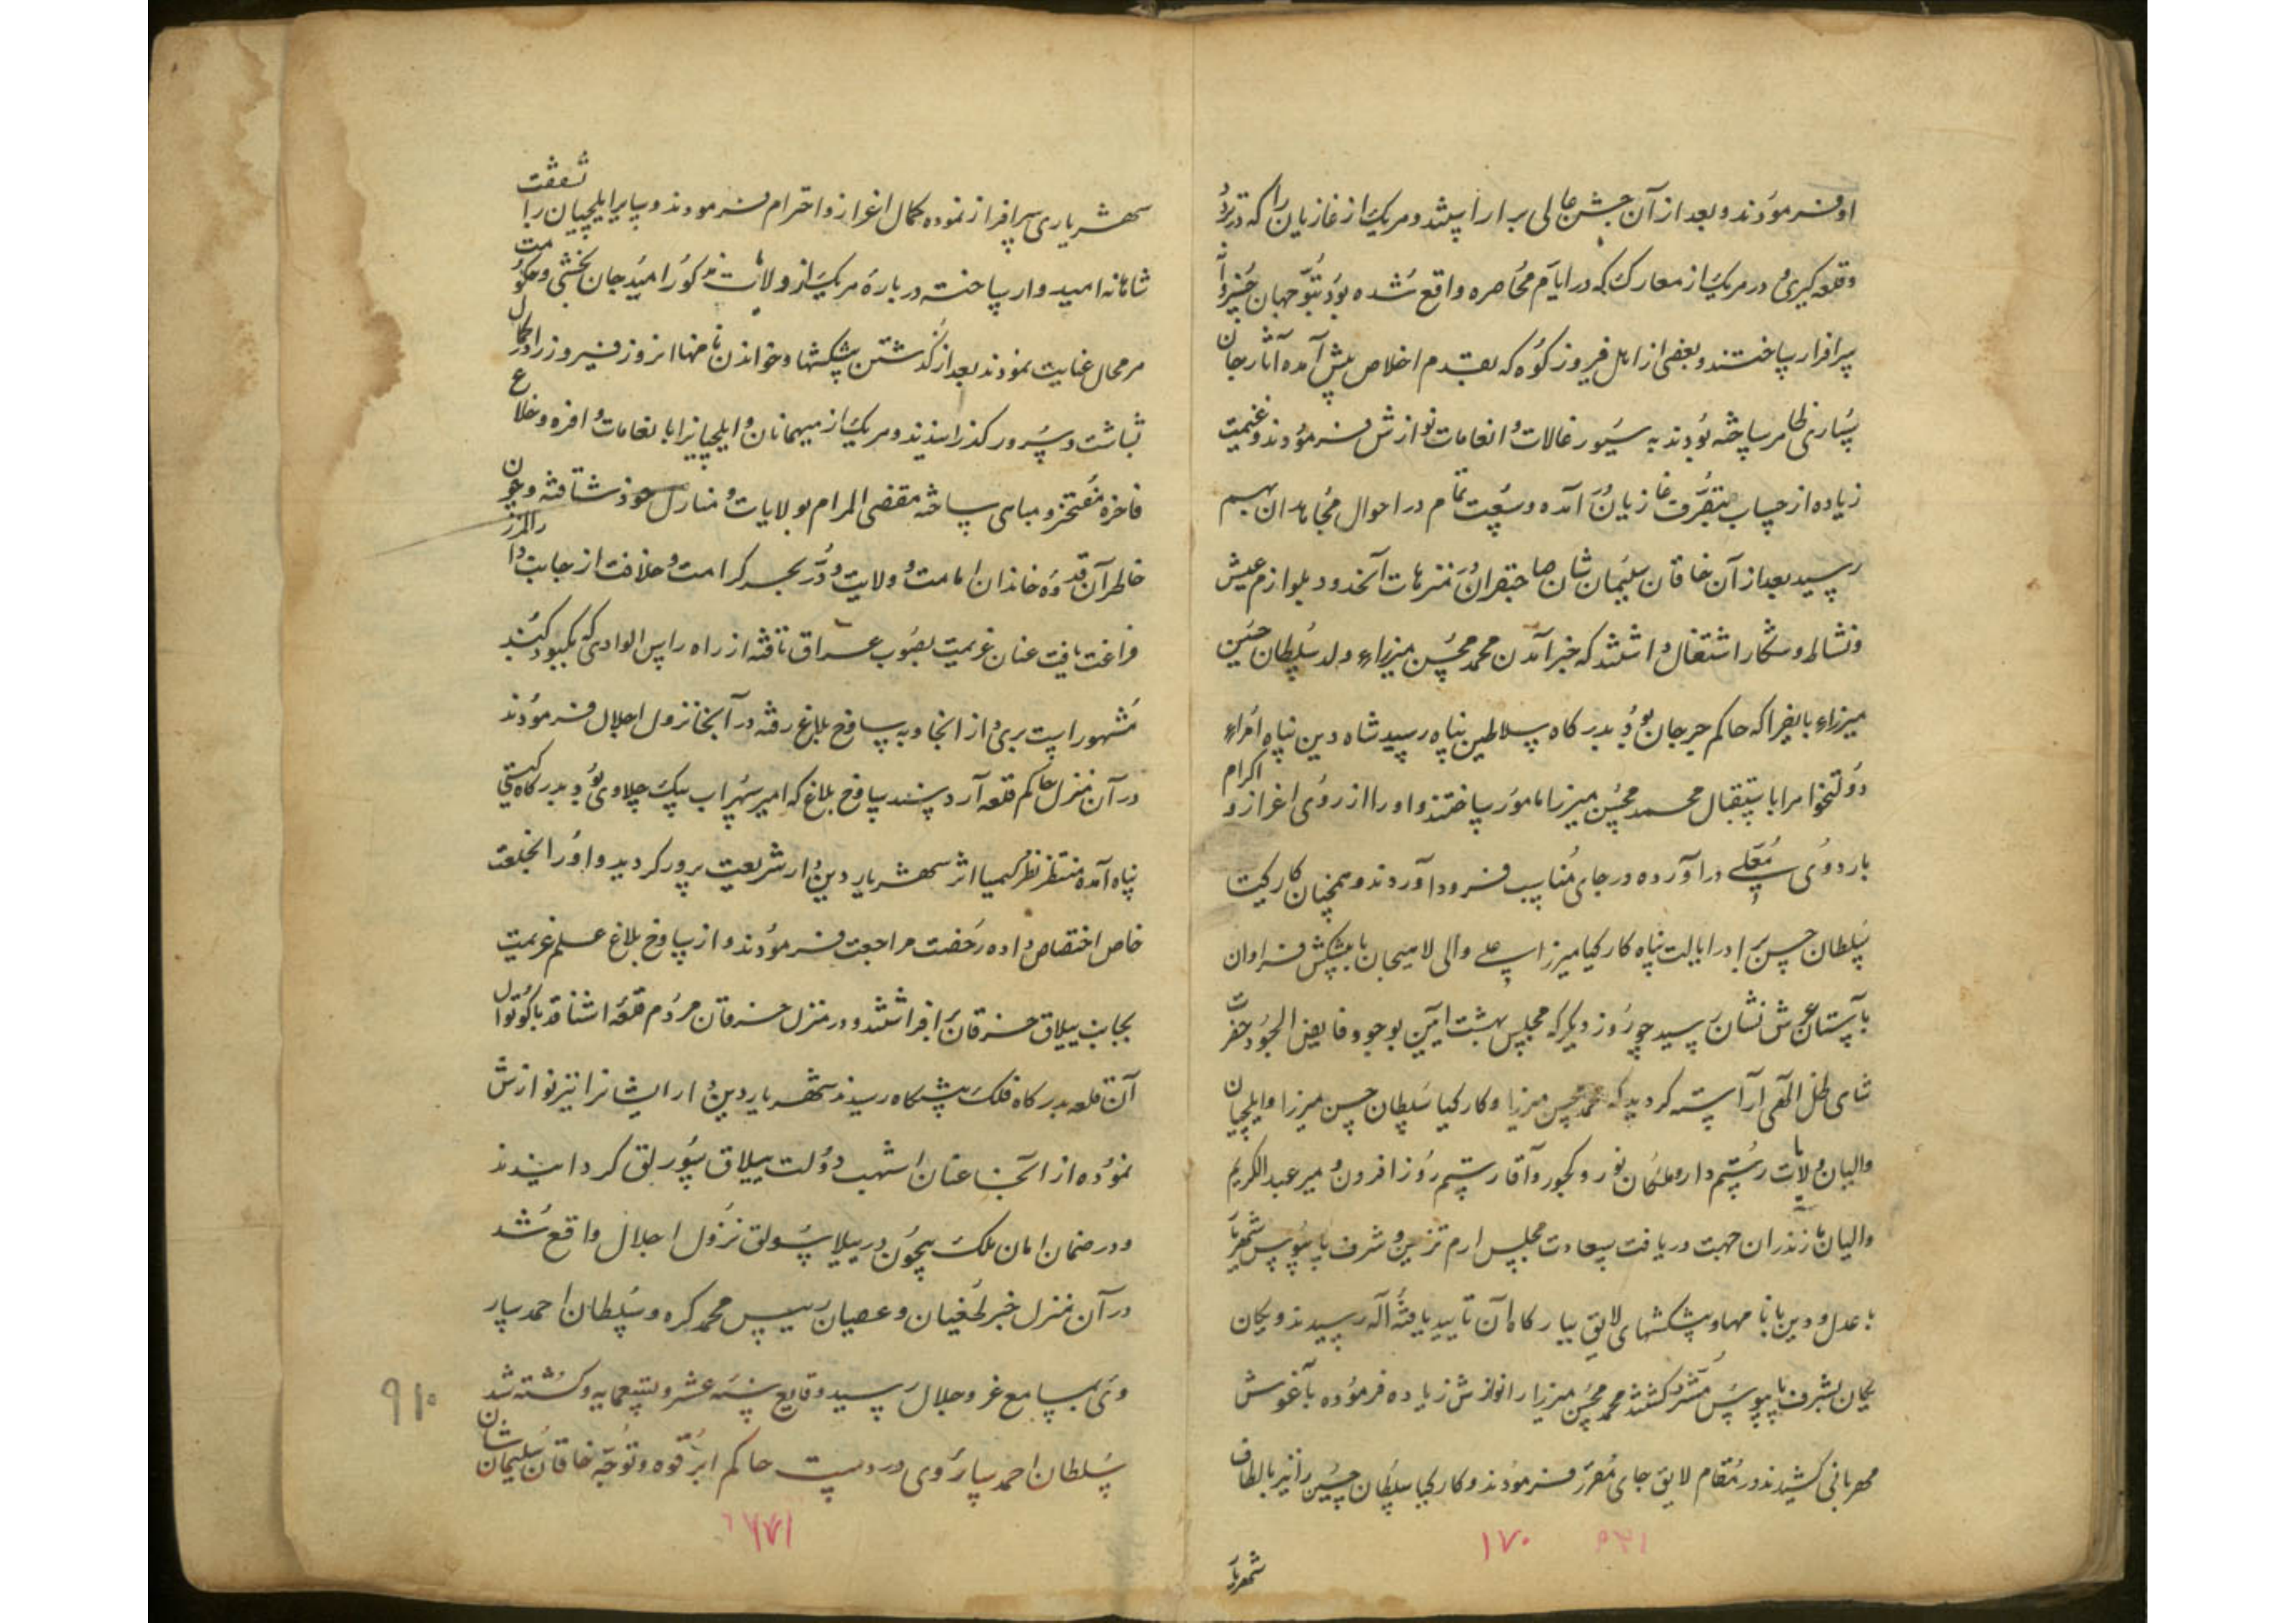 او فرمودند و بعد از آن جشن عالی بر آراستند و هر یک از غازیان را که در نبرد
و قلعه گیری در هر یک از معارک که در ایام محاصره واقع شده بود بتوجهان خسروانه
سرافراز ساختند و بعضی از اهل فیروز کوه که بقدم اخلاص پیش آمده آثار جان
سپاری ظاهر ساخته بودند به سیورغالات و انعامات نوازش فرمودند و غنیمت
زیاده از حساب بتصرف غازیان آمده وسعت تمام در احوال مجاهدان بهم
رسید بعد از آن خاقان سلیمان شان صاحبقران در منتزهات آنحدود بلوازم عیش
و نشاط و شکار اشتغال داشتند که خبر آمدن محمد محسن میرزاء ولد سلطان حسین
میرزاء بایقرا که حاکم جرجان بود بدرگاه سلاطین پناه رسید شاه دین پناه امراء
دولتخواه را باستقبال محمد محسن میرزا مامور ساختند و او را از روی اعزاز و اکرام
باردوی معلی در آورده در جای مناسب فرود آوردند و همچنان کارکیا
سلطان حسن برادر ایالت پناه کارکیا میرزا علی والی لاهیجان با پیشکش فراوان
بآستان عرش نشان رسید چو روز دیگر که مجلس بهشت آیین بوجود فایض الجود حضرت
شاهی ظل آلهی آراسته گردید که محمد محسن میرزا و کارکیا سلطان حسن میرزا و ایلچیان
والیان ولایات رستمدار و ملکان نور و کجور و آقا رستم روز افزون و میر عبدالکریم
والیان مازندران جهت دریافت سعادت مجلس ارم تزیین و شرف پابوس شهریار
با عدل و دین با نامها و پیشکشهای لایق بیارگاه آن تایید یافتهٔ آله رسیدند و یکان
یکان بشرف پابوس مشرف گشتند محمد محسن میرزا را نوازش زیاده فرموده بآغوش
مهربانی کشیدند در مقام لایق جای مقرر فرمودند و کارکیا سلطان حسین را نیز بالطاف
شهریار
۱۷۰
شهریاری سرافراز نموده کمال اعزاز و احترام فرمودند و سایر ایلچیان را بشفقت
شاهانه امیدوار ساخته درباره هر یک از ولات مذکور امید جان بخشی و حکومت
هر محال عنایت نمودند بعد از گذشتن پیشکشها و خواندن نامها آنروز فیروز را در کمال
بشاشت و سرور گذرانیدند و هر یک از میهمانان و ایلچیانرا با نعامات وافره و خلاع
فاخره مفتخر و مباهی ساخته مقضی المرام بولایات و منازل خود شتافته و چون
خاطر آن قدوه خاندان امامت و ولایت و در بحر کرامت و خلافت از جانب دارالمرز
فراغت یافت عنان عزیمت بصوب عراق تافته از راه راس الوادی که بکبود گنبد
مشهور است بری از آنجا و به ساوخ بلاغ رفته در آنجا نزول اجلال فرمودند
در آن منزل حاکم قلعه آرد پسند ساوخ بلاغ که امیر سهراب بیک چلاوی بود بدرگاه گیتی
پناه آمده منتظر نظر کیمیا اثر شهریار دیندار شریعت پرور گردید و او را بخلعت
خاص اختصاص داده رخصت مراجعت فرمودند و از ساوخ بلاغ علم عزیمت
بجانب ییلاق خرقان برافراشتند و در منزل خرقان مردم قلعه اشناقه با کوتوال
آن قلعه بدرگاه فلک پیشگاه رسیدند شهریار دیندار ایشانرا نیز نوازش
نموده از آنجا عنان اشهب دولت بییلاق سورلق گردانیدند
و در ضمان امان ملک بیچون در ییلاق سورلق نزول اجلال واقع شد
در آن منزل خبر طغیان و عصیان رییس محمد کره و سلطان احمد سار
وی بمسامع عز و جلال رسید وقایع سنه عشر و تسعمایه و کشته شدن
سلطان احمد ساروی در دست حاکم ابرقوه و توجه خاقان سلیمان شان
۹۱۰
۱۷۱